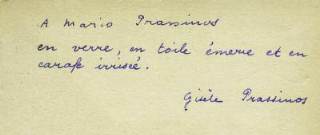 A Mario Prassinos
en verre, en toile émerie et en
carafe irrisée.
Gisèle Prassinos